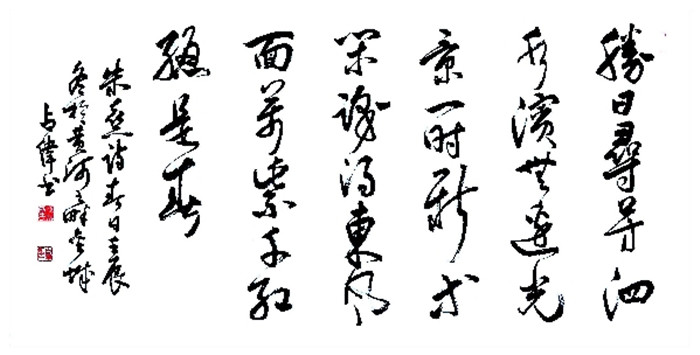 勝日尋芳泗
水濱無邊光
景一时新等
閑識得東風
面萬紫千紅
總是春
朱熹詩春日壬辰
冬於黄河之畔金城
占偉书